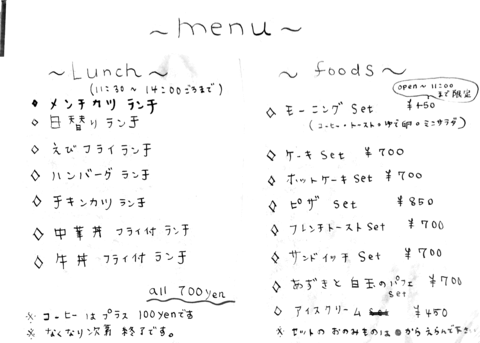 ~menu~
~Lunch~
(11:30 ~ 14:00ごろまで)
◆ メンチカツ ランチ
◇ 日替り ランチ
◇ えび フライ ランチ
◇ ハンバーグ ランチ
◇ チキンカツ ランチ
◇ 中華丼 フライ付 ランチ
◇ 牛丼 フライ付 ランチ
all 700yen
※ コーヒー は プラス 100yenです
※ なくなり次第 終了です。
~ foods ~
open~11:00
まで限定
◇ モーニング Set ¥450
(コーヒー・トースト・ゆで卵・ミニサラダ)
◇ ケーキ Set ¥700
◇ ホットケーキ Set ¥700
◇ ピザ Set ¥850
◇ フレンチトースト Set ¥700
◇ サンドイッチ Set ¥700
◇ あずきと 白玉のパフェ ¥700
set
◇ アイスクリーム ¥450
※ セットの おのみものは から えらんで下さい